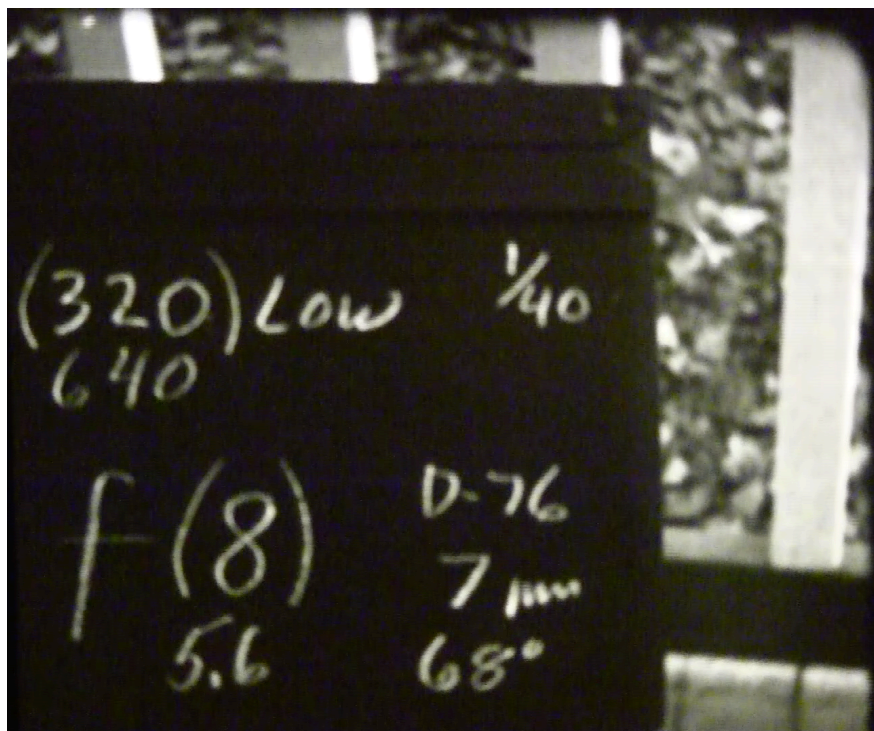 (320) Low 1/40
640
f (8) D-76
7 min
5.6 68°